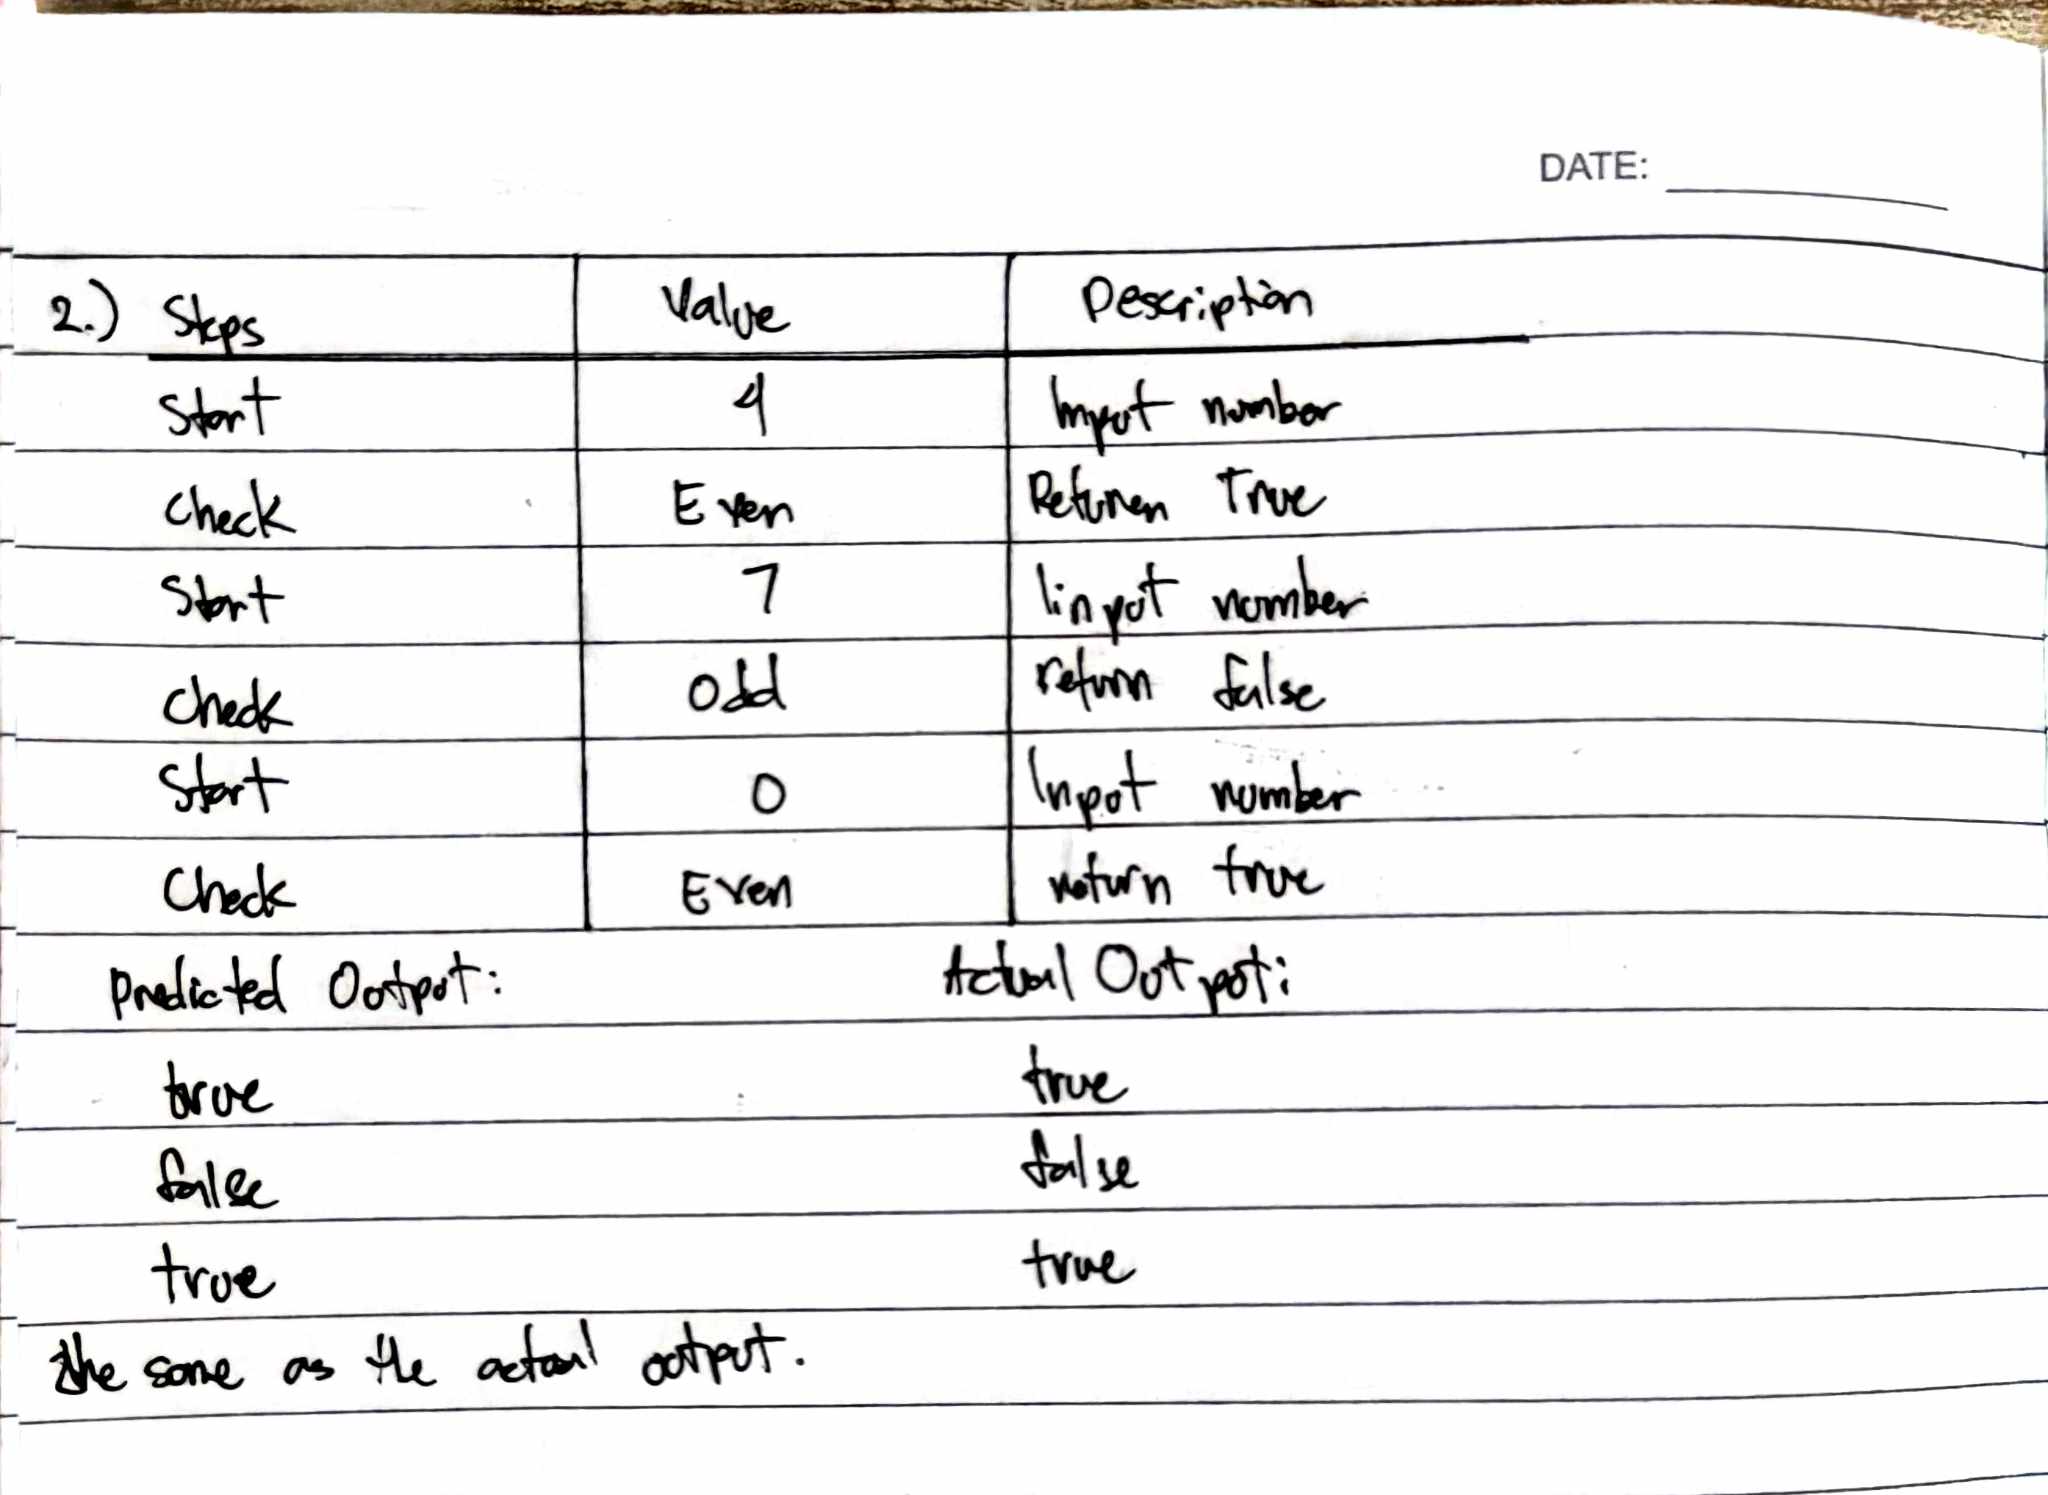 DATE:
2.) Steps Value Description
Start 4 Input number
Check Even Returen True
Start 7 Iinput number
Check Odd return false
Start 0 Input number
Check Even return true
Predicted Output: Actual Output:
true true
false false
true true
the same as the actual output.